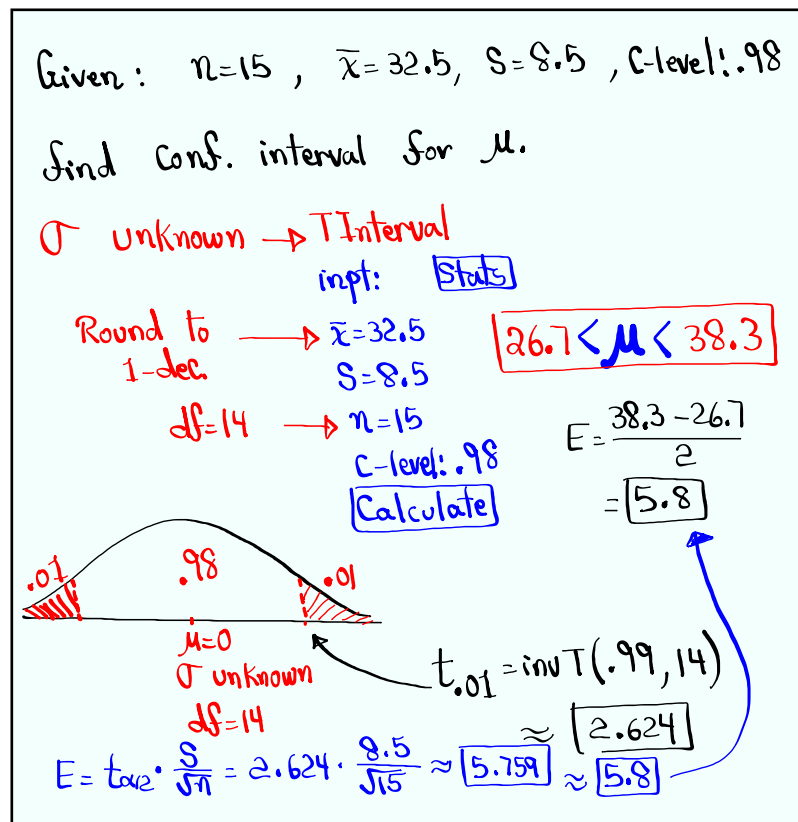 Given: n=15, x̄=32.5, S=8.5, C-level: .98
find conf. interval for μ.
σ unknown → TInterval
inpt: Stats
Round to → x̄=32.5
1-dec.
S=8.5
26.7 < μ < 38.3
df=14 → n=15
C-level: .98
Calculate
E = (38.3 - 26.7)/2
= 5.8
.01 .98 .01
μ=0
σ unknown
df=14
t.01 = invT(.99, 14)
≈ 2.624
E = tα/2 · S/√n = 2.624 · 8.5/√15 ≈ 5.759 ≈ 5.8